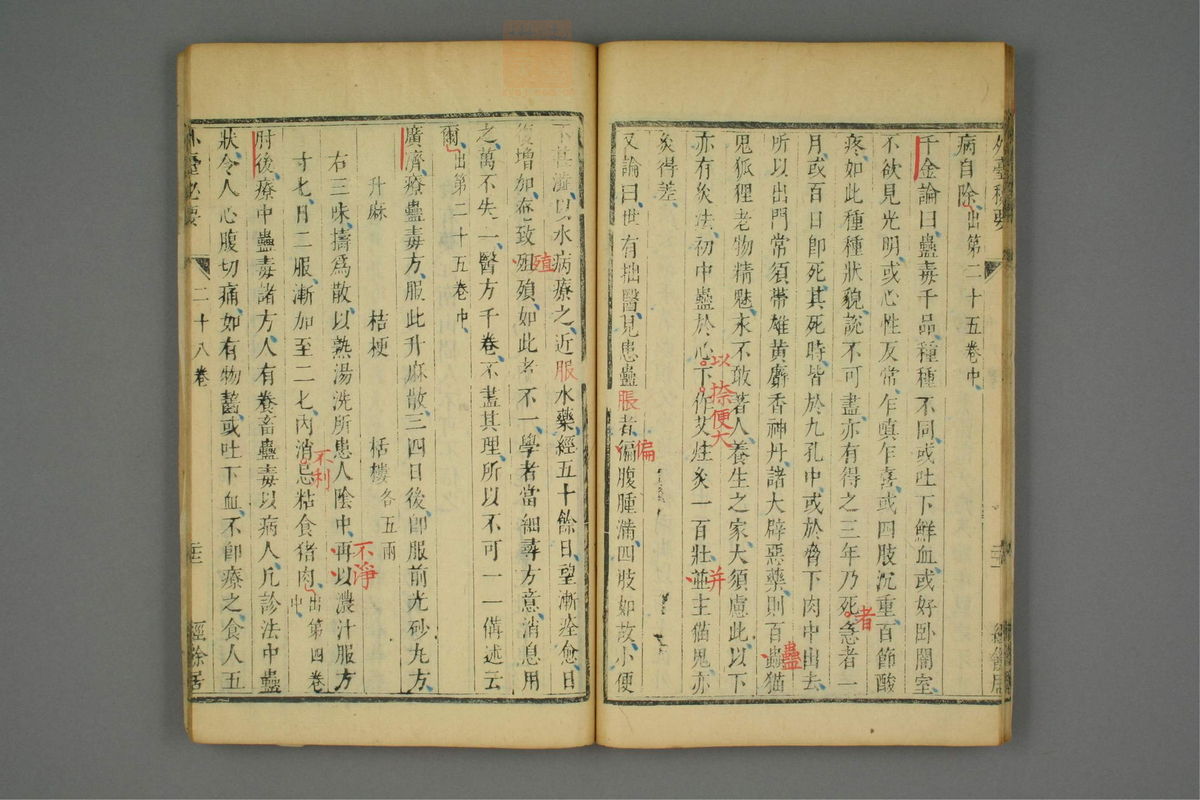 外臺秘要
病自除出第二十五卷中
千金論曰蠱毒千品種種不同或吐下鮮血或好卧闇室
不欲見光明或心性反常乍嗔乍喜或四肢沉重百節酸
疼如此種種狀貌說不可盡亦有得之三年乃死急者一
者
月或百日卽死其死時皆於九孔中或於脅下肉中出去
所以出門常須帶雄黃麝香神丹諸大辟惡藥則百蟲猫
蠱
鬼狐狸老物精魅永不敢著人養生之家大須慮此以下
以捺便大
并
亦有灸法初中蠱於心下作艾炷灸一百壯並主猫鬼亦
灸得差
又論曰世有拙醫見患蠱脹者徧腹腫滿四肢如故小便
偏
不甚澁以水病療之近服水藥經五十餘日望漸痊愈日
復增加奄致殂殞如此者不一學者當細尋方意消息用
殖
之萬不失一醫方千卷不盡其理所以不可一一備述云
爾出第二十五卷中
廣濟療蠱毒方服此升麻散三四日後卽服前光砂丸方
升麻 桔梗 栝樓各五兩
右三味擣爲散以熟湯洗所患人陰中再以濃汁服方
不淨
寸七月二服漸加至二七內消忌粘食猪肉出第四卷中
不利
肘後療中蠱毒諸方人有養畜蠱毒以病人凡診法中蠱
狀令人心腹切痛如有物齧或吐下血不卽療之食人五
外臺必要
二十八卷
經餘居